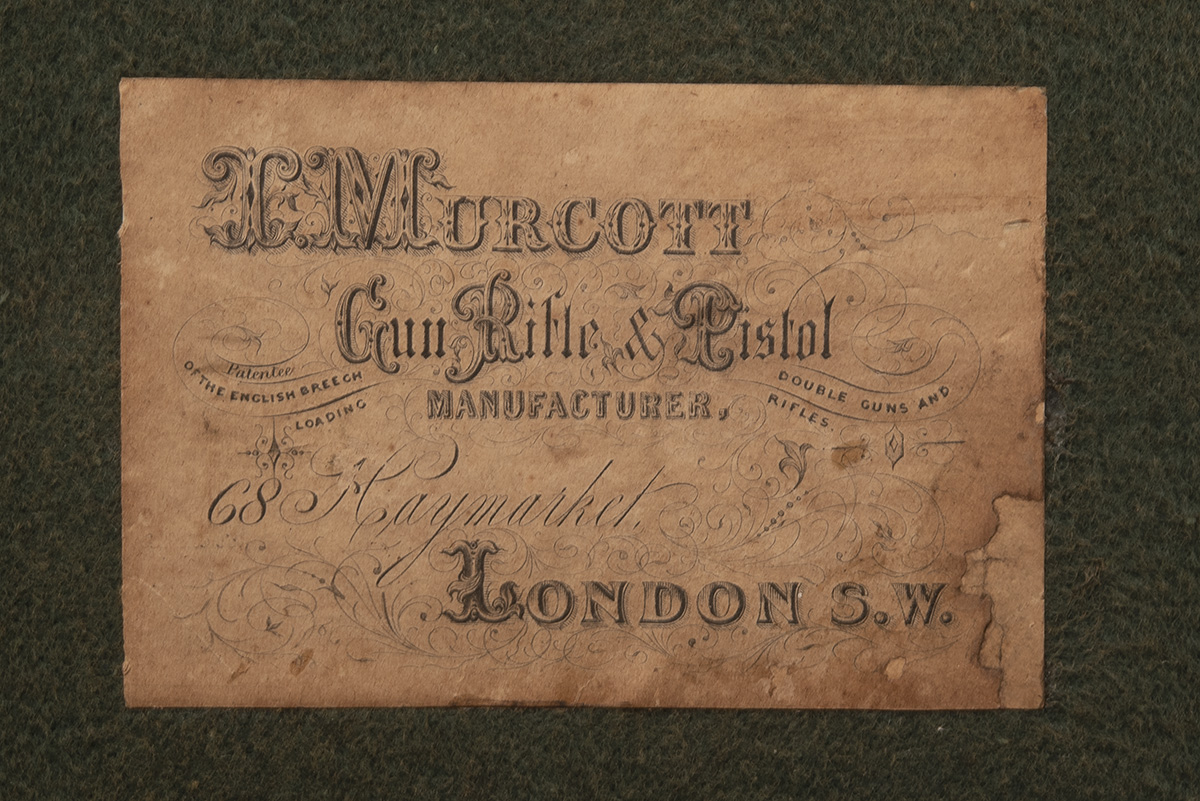 T MURCOTT
Gun Rifle & Pistol
MANUFACTURER,
Patentee
OF THE ENGLISH BREECH
LOADING
DOUBLE GUNS AND
RIFLES.
68 Haymarket,
LONDON S.W.